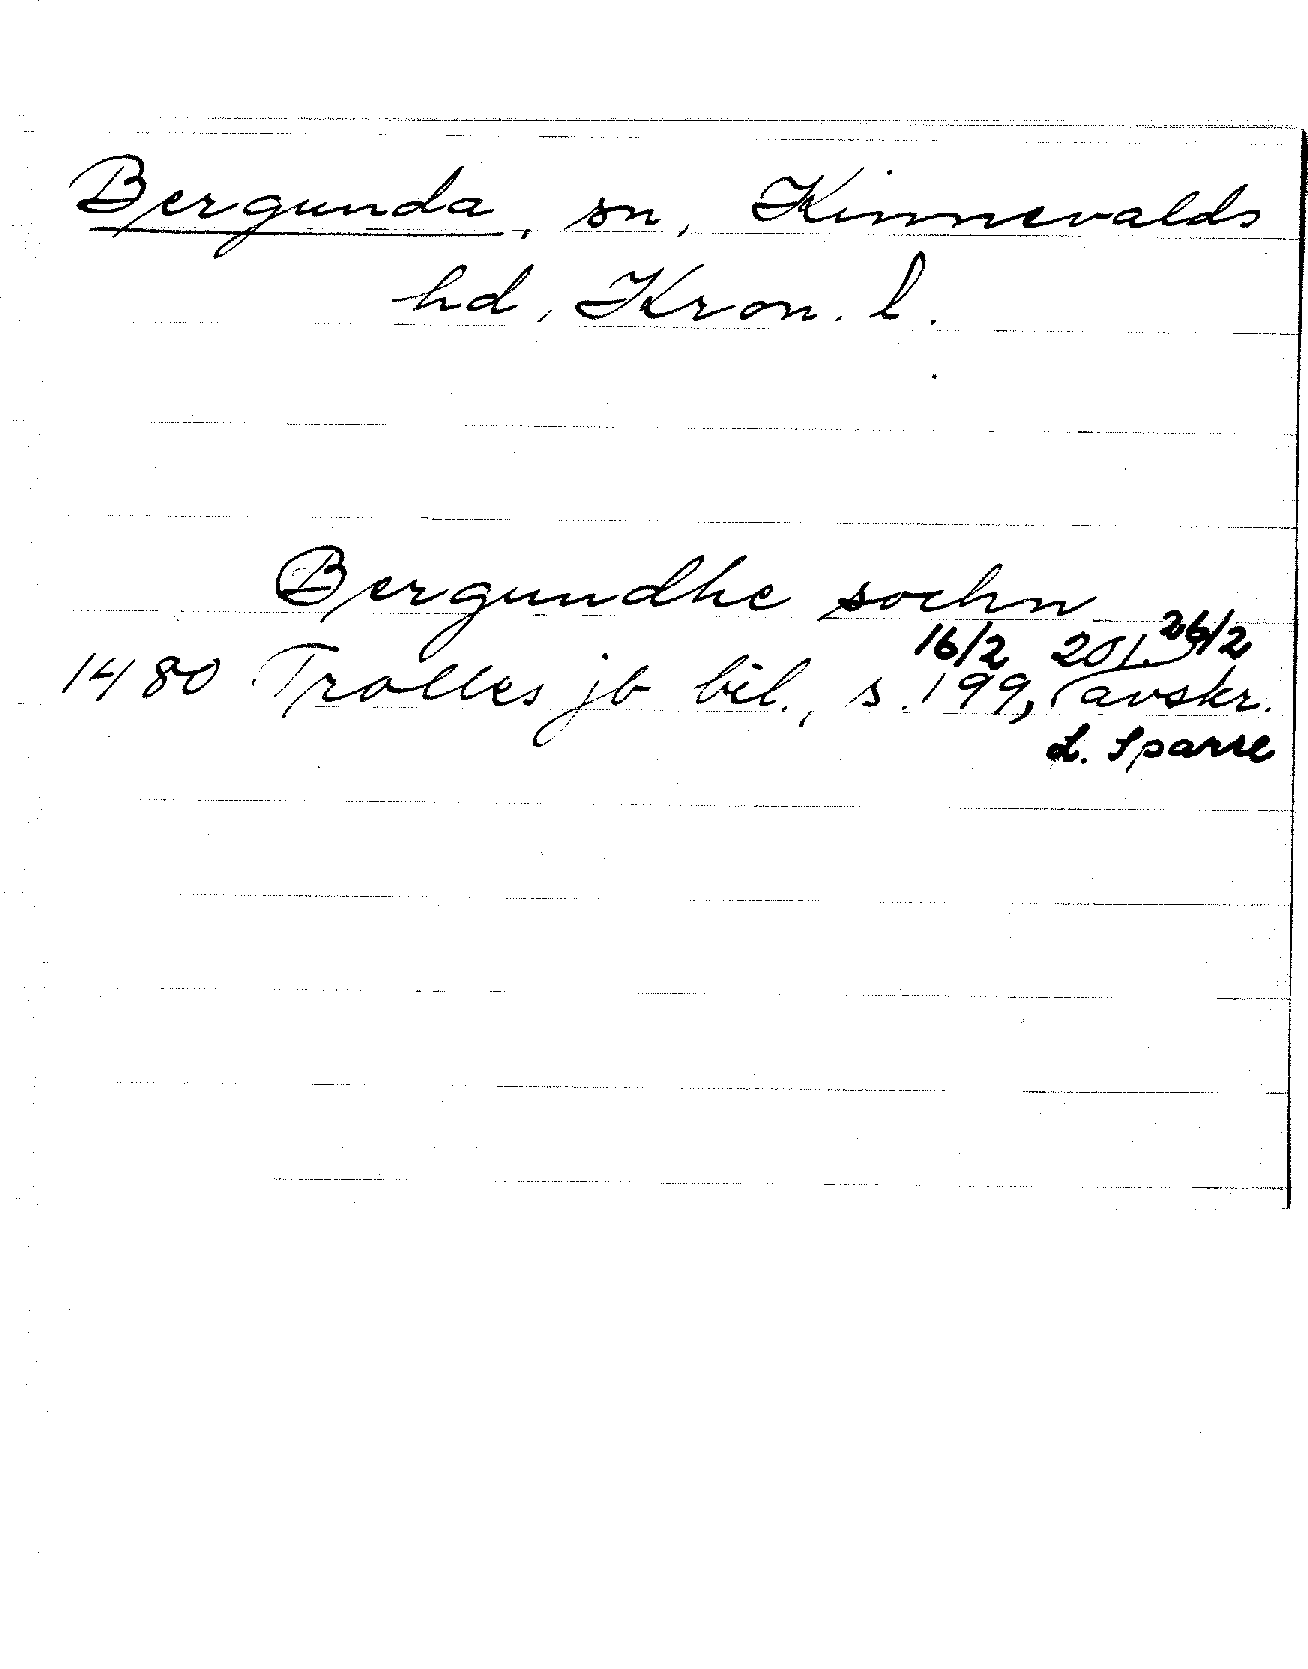 Bergunda, sn, Kinnevalds
hd, Kron. l.
Bergundhe sochn
16/2 201. 26/2
1480 Trolles jb bil., s. 199, (avskr.
L. Sparre